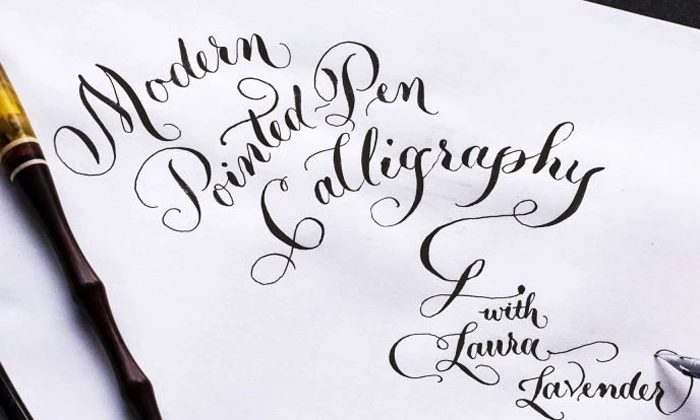 Modern
Pointed Pen
Calligraphy
with
Laura
Lavender